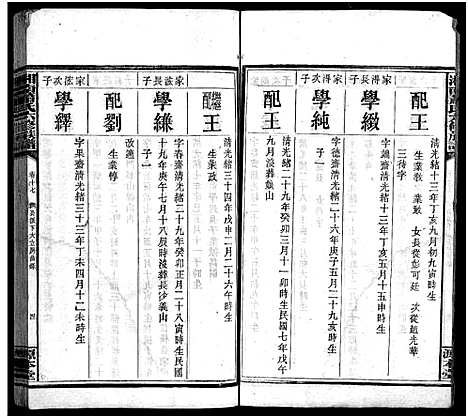 清光緒十三年丁亥九月初九寅時生
生業教 業敏 女長從彭可廷 次從趙光華
三待字
家得長子
學緻
字鏡齋清光緒十三年丁亥五月十五申時生
配王
家得次子
學純
字德齋清光緒二十六年庚子五月二十九亥時生
配王
清光緒二十九年癸卯三月十一卯時生民國七年戊午
九月沒葬
繼配王
清光緒三十四年戊申二月二十六午時生
生業政
家法長子
學縑
字春齋清光緒二十九年癸卯正月二十八寅時生民國
十九年庚午七月十八辰時沒葬長沙義山
子一
配劉
生業惇
家法次子
學繹
字果齋清光緒三十三年丁未四月十二未時生
卷廿七
四
源本堂